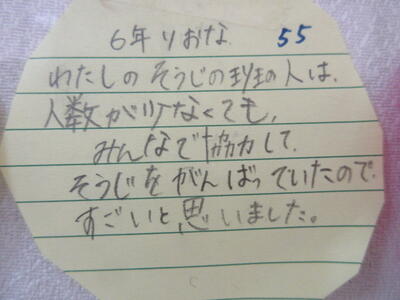 6年 りおな 55
わたしの そうじの班の人は、
人数が少なくても、
みんなで協力して、
そうじをがんばっていたので、
すごいと思いました。